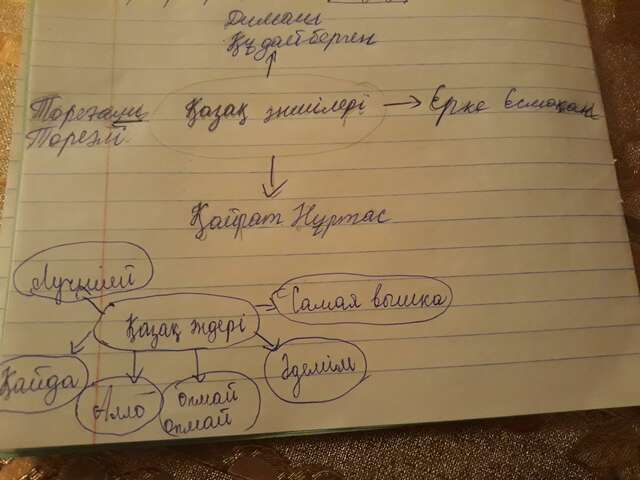 Димаш
Құдайберген
Төреғали
Төреәлі
Қазақ әншілері
Ерке Есмахан
Қайрат Нұртас
Лучший
Самая вышка
Қазақ әндері
Қайда
Алло
Оқтай
оқтай
Әдемім